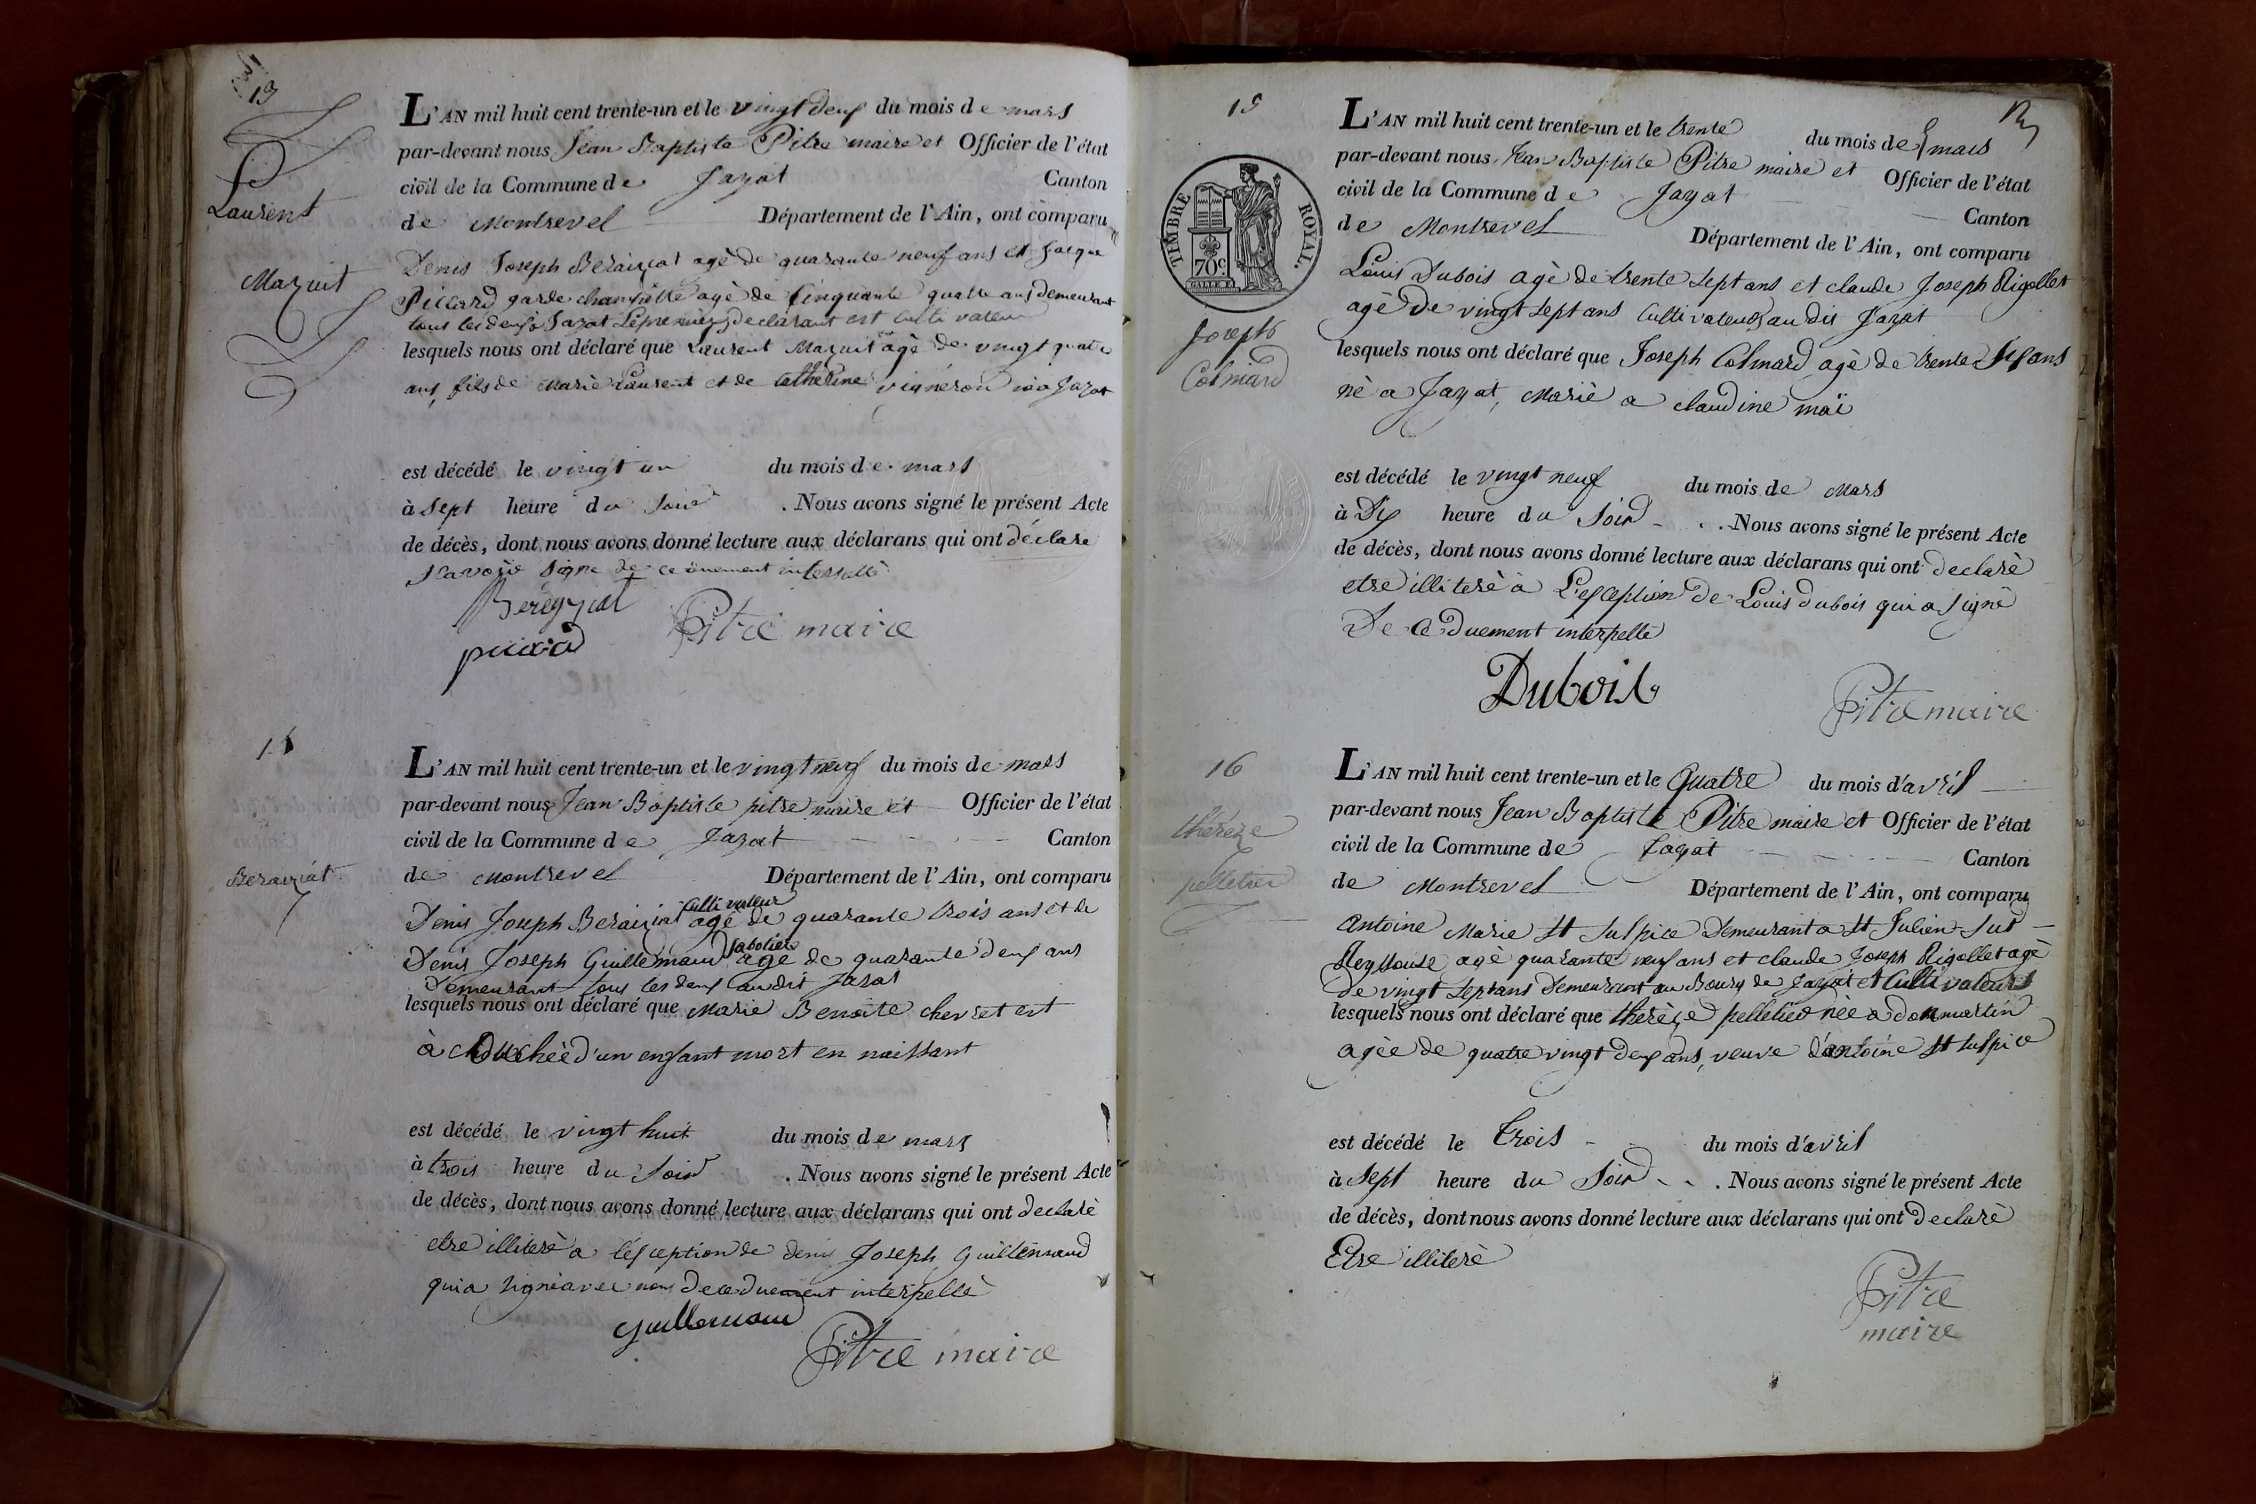 13
Laurent
Mazuit
L'AN mil huit cent trente-un et le vingt deux du mois de mars
par-devant nous Jean Baptiste Pitre maire et Officier de l'état
civil de la Commune de Jayat Canton
de Montrevel Département de l'Ain, ont comparu
Denis Joseph Beraiziat agè de quarante neuf ans et Jacque
Piccard garde champètre agè de Cinquante quatre ans demeurant
tous les deux a Jayat Le premier declarant est cultivateur
lesquels nous ont déclaré que Laurent Mazuit agè de vingt quatre
ans, fils de Marie Laurent et de Catherine vigneron nè a Jayat
est décédé le vingt un du mois de mars
à sept heure du soir . Nous avons signé le présent Acte
de décès, dont nous avons donné lecture aux déclarans qui ont déclare
savoir signe de ce duement interpellè
Pitre maire
Beraiziat
L'AN mil huit cent trente-un et le vingt neuf du mois de mars
par-devant nous Jean Baptiste pitre maire et Officier de l'état
civil de la Commune de Jayat Canton
de Montrevel Département de l'Ain, ont comparu
cultivateur
Denis Joseph Beraiziat agè de quarante trois ans et de
sabotier
Denis Joseph Guillemaud agè de quarante deux ans
Demeurant tous les deux audit Jayat
lesquels nous ont déclaré que Marie Benoite chevret est
à couchèe d'un enfant mort en naissant
est décédé le vingt huit du mois de mars
à trois heure du Soir . Nous avons signé le présent Acte
de décès, dont nous avons donné lecture aux déclarans qui ont declarè
etre illiterè a l'éxception de denis Joseph Guillemaud
qui a signè avec nous de ce duement interpellè
guillemaud
Pitre maire
15
TIMBRE ROYAL.
70c
Joseph
Colmard
L'AN mil huit cent trente-un et le trente du mois de mars
par-devant nous Jean Baptiste Pitre maire et Officier de l'état
civil de la Commune de Jayat Canton
de Montrevel Département de l'Ain, ont comparu
Louis Dubois agè de trente sept ans et claude Joseph Rigollet
agè de vingt sept ans cultivateurs au dit Jayat
lesquels nous ont déclaré que Joseph Colmard agè de trente six ans
nè a Jayat, Mariè a claudine maï
est décédé le vingt neuf du mois de Mars
à Dix heure du Soir . Nous avons signé le présent Acte
de décès, dont nous avons donné lecture aux déclarans qui ont declarè
etre illiterè à L'exception de Louis dubois qui a signè
De ce duement interpellè
Dubois
Pitre maire
16
thérèze
pelletier
L'AN mil huit cent trente-un et le Quatre du mois d'avril
par-devant nous Jean Baptiste Pitre maire et Officier de l'état
civil de la Commune de Jayat Canton
de Montrevel Département de l'Ain, ont comparu
Antoine Marie St Sulpice Demeurant a St Julien Sur
Reyssouze agè quarante neuf ans et claude Joseph Rigollet agè
De vingt Sept ans Demeurant au Bourg de Jayat et Cultivateurs
lesquels nous ont déclaré que thérèze pelletier nèe a dommartin
agèe de quatre vingt deux ans, veuve d'antoine St Sulpice
est décédé le trois du mois d'avril
à Sept heure du Soir . Nous avons signé le présent Acte
de décès, dont nous avons donné lecture aux déclarans qui ont declarè
Etre illiterè
Pitre
maire